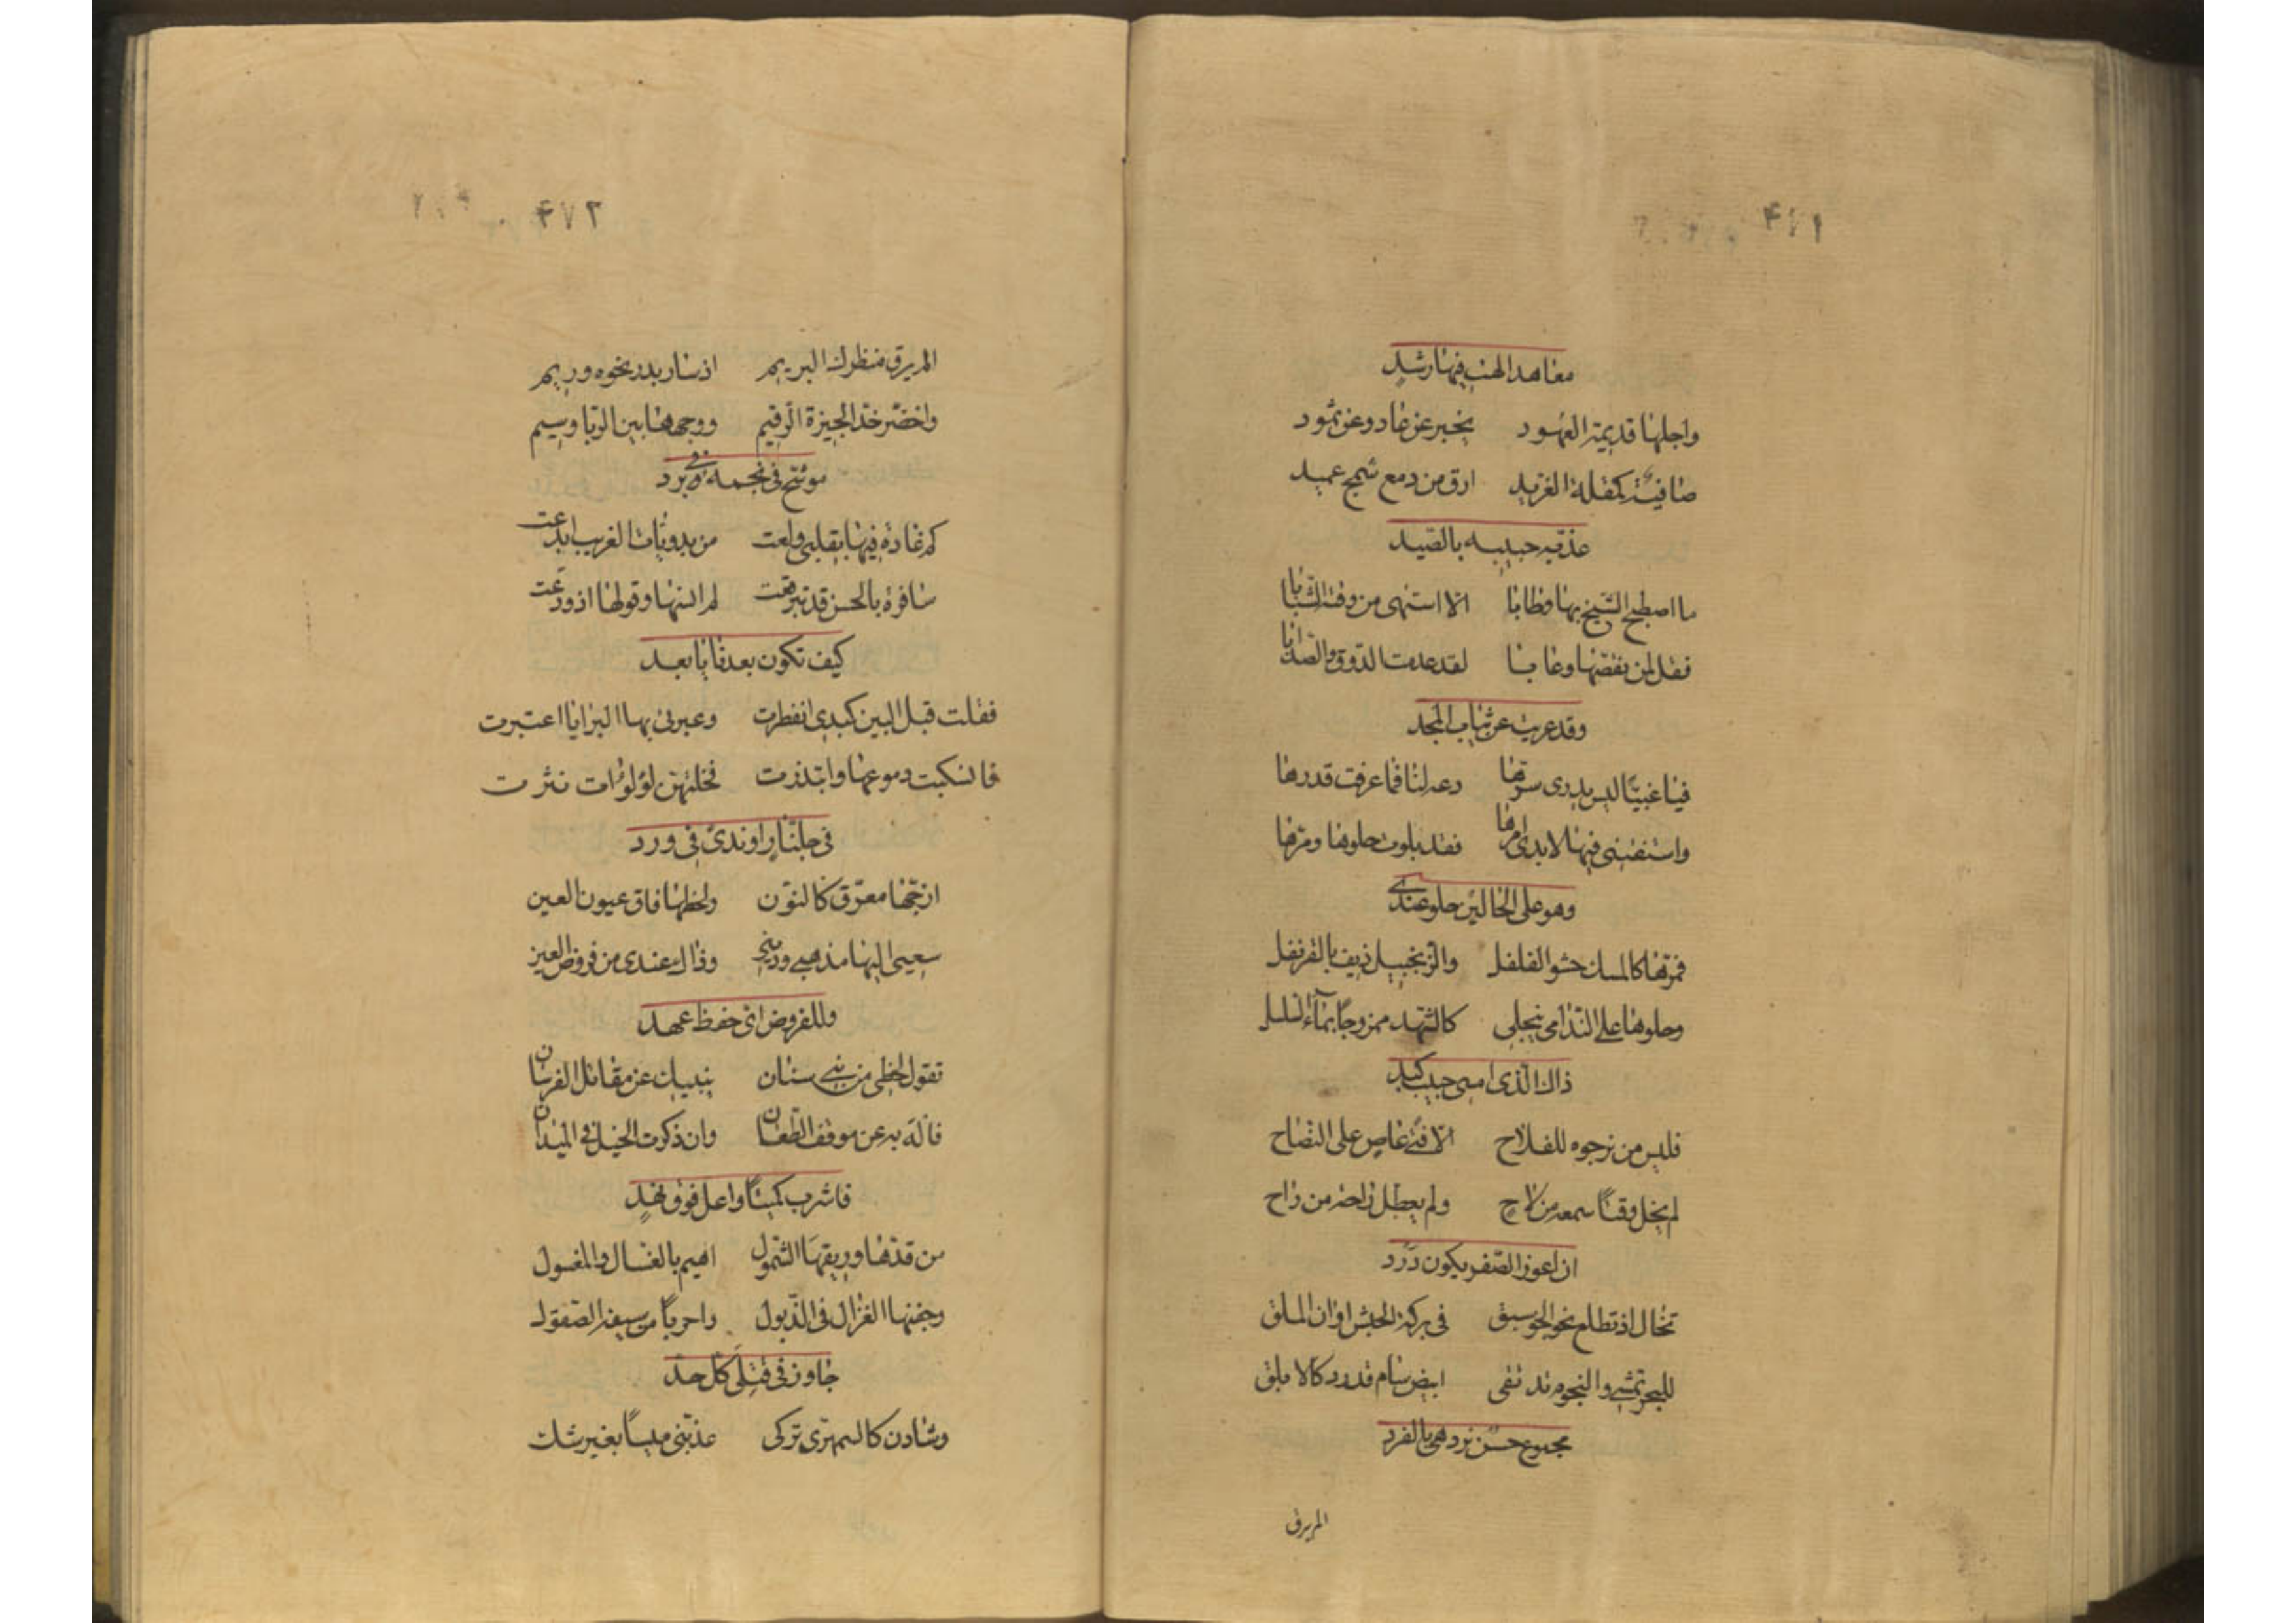 ۴۷۱
معاهد الهنا فيها رشد
واجلها قديمة العهود بخبر عن عاد وعن ثمود
صافية كمقلة الغريد ارق من دمع شج عميد
عذقيه حبيبه بالصيد
ما اصطبح الشيخ بها وطابا الا اشتهى من وقته الشبابا
فقل لمن نقصها وعابا لقد عدمت الذوق والصوابا
وقد عريت عن ثياب المجد
فيا غبيا ليس يدرى سرها دعه لنا فما عرفت قدرها
واستفتنى فيها لابدى امرها فقد بلوت حلوها ومرها
وهو على الحالين حلو عندى
فمرها كالمسك حشو الفلفل والزنجبيل ذيف بالقرنفل
وحلوها على الندامى ينجلى كالشهد ممزوجا بماء السلسل
ذاك الذى امسى حبيب كبد
فليس من نرجوه للفلاح الا فتى عاص على النصاح
لم يخل وقتا سمعه من لاح ولم يعطل راحة من راح
ان اعوز الصفر يكون درد
تخال اذ تطلع نحو الجوسق فى بركة الحبش اوان الملق
للبحر تمشى والنجوم تدتقى ابيض سام قد ود كالابلق
مجموع حسن نردهى بالفرد
الم يرق
۴۷۲
الم يرق منظرك البريم اذ سار بدر نحوه وريم
واخضر خد الجيزة الرقيم ووجهها بين الربا وسيم
موشح فى نجمه فى برد
كم غادة فيها بقلبى ولعت من بدويات الغريب ابدعت
سافرة بالحسن قد تبرقعت لم انسها وقولها اذ ودعت
كيف تكون بعدنا يا بعد
فقلت قبل البين كبدى انفطرت وعبرتى بها البرايا اعتبرت
فانسكبت دموعها وابتدرت فخلتهن لؤلؤات نثرت
فى جلنار او ندى فى ورد
ازجها معرق كالنون ولحظها فاق عيون العين
سعيى اليها مذهبى ودينى وذاك عندى من فروض العين
وللفروض انى حفظ عهد
تقول لحظى من بنى سنان ينبيك عن مقاتل الفرسان
فاله به عن موقف الطعان وان ذكرت الخيل فى الميدان
فاشرب كميتا واعل فوق نهد
من قدها وريقها الشمول اهيم بالعسال والمعسول
وجفنها الغزال فى الذبول واحربا من سيفه الصقول
جاوز فى قتلى كل حد
وشادن كالسمهرى تركى عذبنى ميسا بغير شك